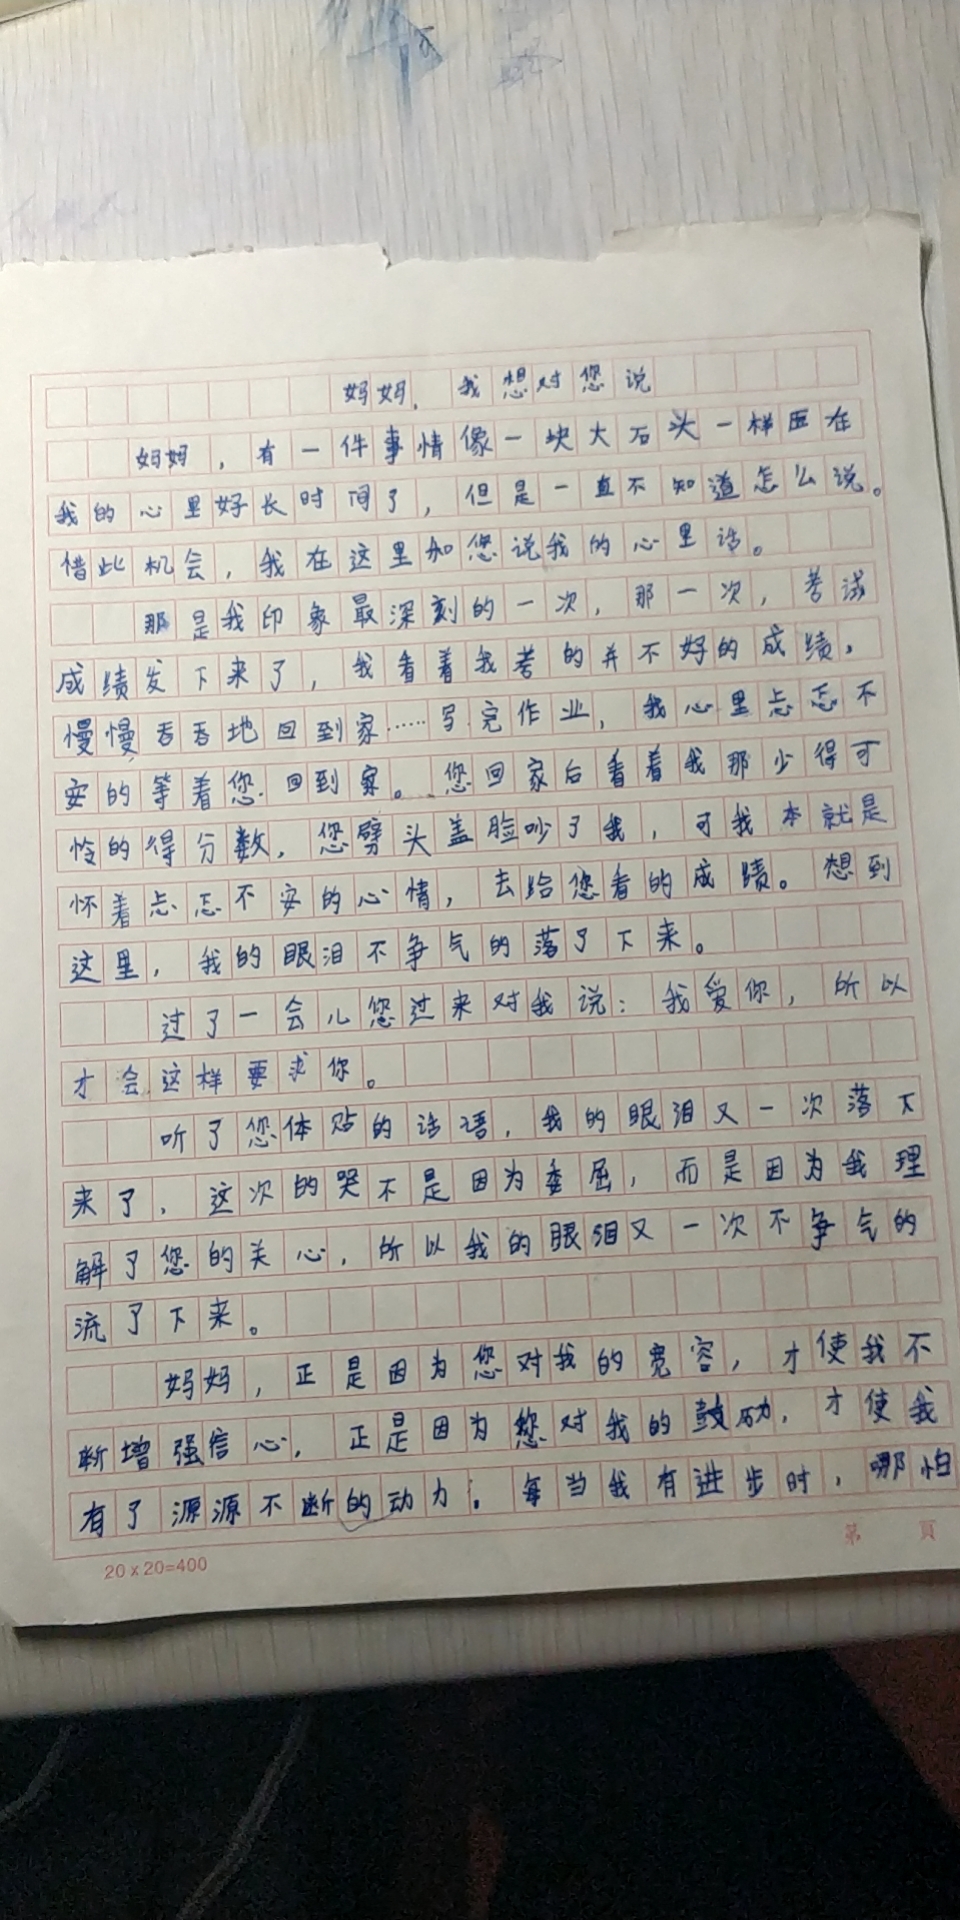 妈妈，我想对您说
妈妈，有一件事情像一块大石头一样压在
我的心里好长时间了，但是一直不知道怎么说。
借此机会，我在这里和您说我的心里话。
那是我印象最深刻的一次，那一次，考试
成绩发下来了，我看着我考的并不好的成绩，
慢慢吞吞地回到家……写完作业，我心里忐忑不
安的等着您回到家。您回家后看着我那少得可
怜的得分数，您劈头盖脸吵了我，可我本就是
怀着忐忑不安的心情，去给您看的成绩。想到
这里，我的眼泪不争气的落了下来。
过了一会儿您过来对我说：我爱你，所以
才会这样要求你。
听了您体贴的话语，我的眼泪又一次落下
来了，这次的哭不是因为委屈，而是因为我理
解了您的关心，所以我的眼泪又一次不争气的
流了下来。
妈妈，正是因为您对我的宽容，才使我不
断增强信心，正是因为您对我的鼓励，才使我
有了源源不断的动力。每当我有进步时，哪怕
20×20=400
第 頁